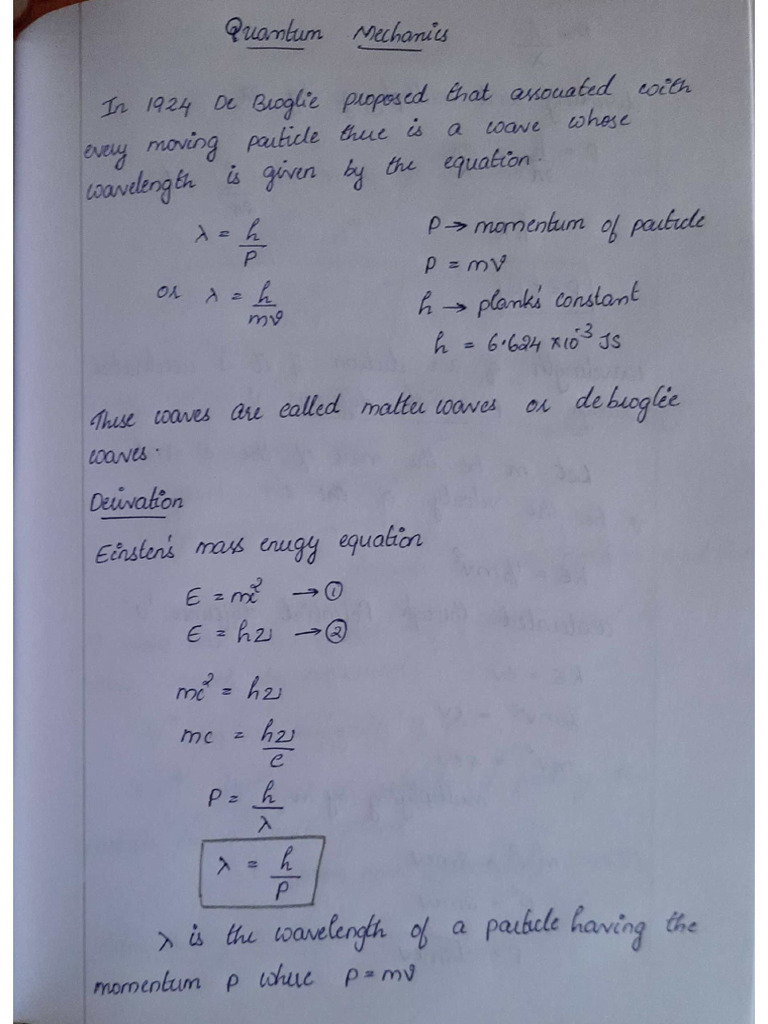 Quantum Mechanics
In 1924 De Broglie proposed that assouated with
every moving particle there is a wave whose
wavelength is given by the equation.
λ = h/P
P → momentum of particle
P = mv
or λ = h/mv
h → plank's constant
h = 6.624 × 10⁻³ JS
These waves are called matter waves or debroglie
waves.
Derivation
Einsten's mass energy equation
E = mc² → ①
E = hν → ②
mc² = hν
mc = hν/c
P = h/λ
λ = h/P
λ is the wavelength of a particle having the
momentum p where p = mv